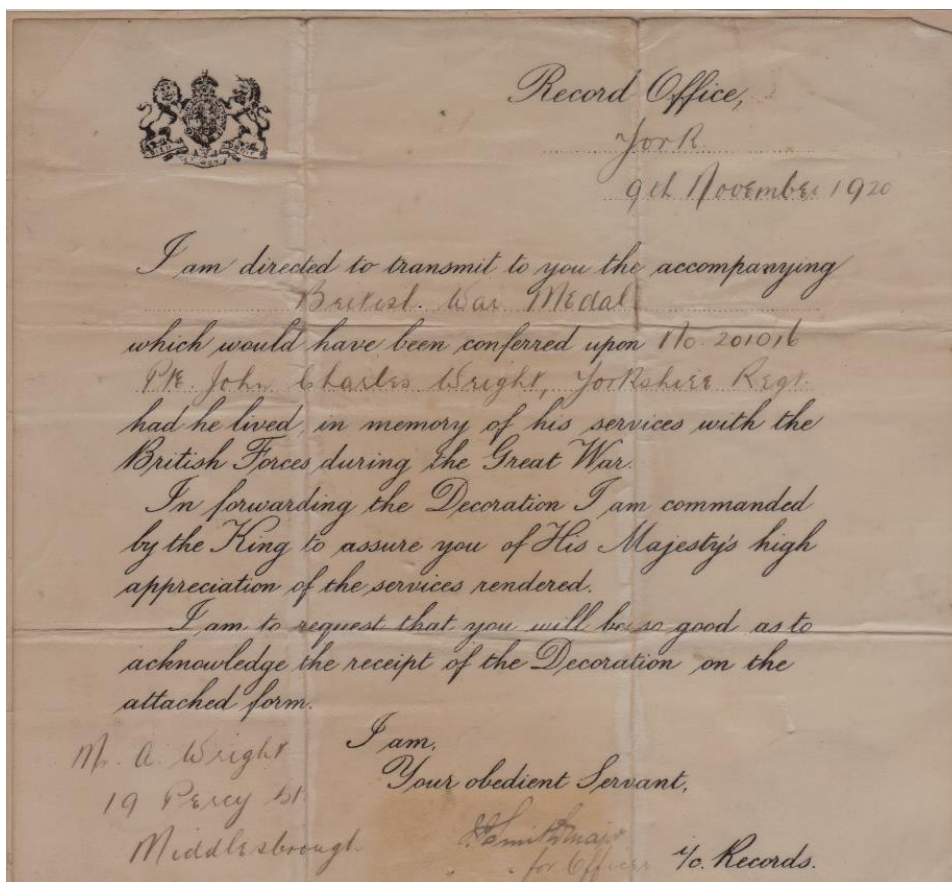 Record Office,
York
9th November 1920
I am directed to transmit to you the accompanying
British War Medal
which would have been conferred upon No. 201016
Pte. John Charles Wright, Yorkshire Regt.
had he lived, in memory of his services with the
British Forces during the Great War.
In forwarding the Decoration I am commanded
by the King to assure you of His Majesty's high
appreciation of the services rendered.
I am to request that you will be so good as to
acknowledge the receipt of the Decoration on the
attached form.
I am,
Your obedient Servant,
Mr. A. Wright
19 Percy St.
Middlesbrough
Smith Major
for Officer i/c. Records.